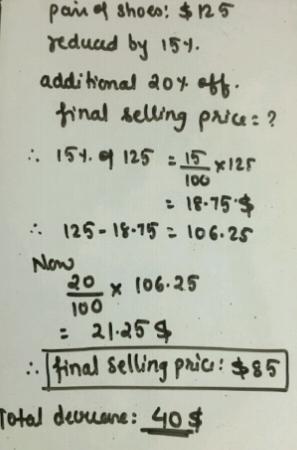 pair of shoes: $125
reduced by 15%.
additional 20% off.
final selling price = ?
∴ 15% of 125 = 15/100 × 125
= 18.75 $
∴ 125 - 18.75 = 106.25
Now
20/100 × 106.25
= 21.25 $
∴ final selling price: $85
Total decrease: 40 $